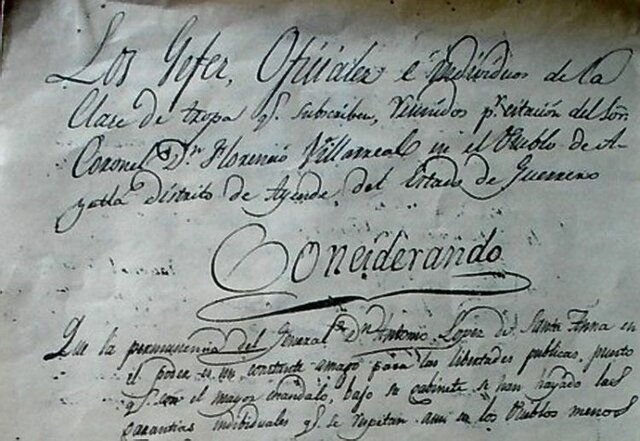 Los Gefes, Oficiales e individuos de la
Clase de tropa q.e subscriben, reunidos p.r citación del Sor.
Coronel D.n Florencio Villarreal en el Pueblo de A-
yutla distrito de Ayende del Estado de Guerrero
Considerando
Que la permanencia del General D.n Antonio Lopez de Santa Anna en
el poder es un constante amago para las libertades publicas, puesto
q.e con el mayor escandalo, bajo su gabinete se han hayado las
garantias individuales q.e se respetan aun en los Pueblos menos